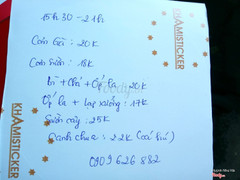 15h30 - 21h
Cơm tấm : 20K
Cơm sườn : 18K
Bì + Chả + Ốp la : 20K
Ốp la + Lạp xưởng : 17K
Sườn cây : 25K
Canh chua : 22K (cá hú)
0909 626 882
KHAMISTICKER
KHAMISTICKER